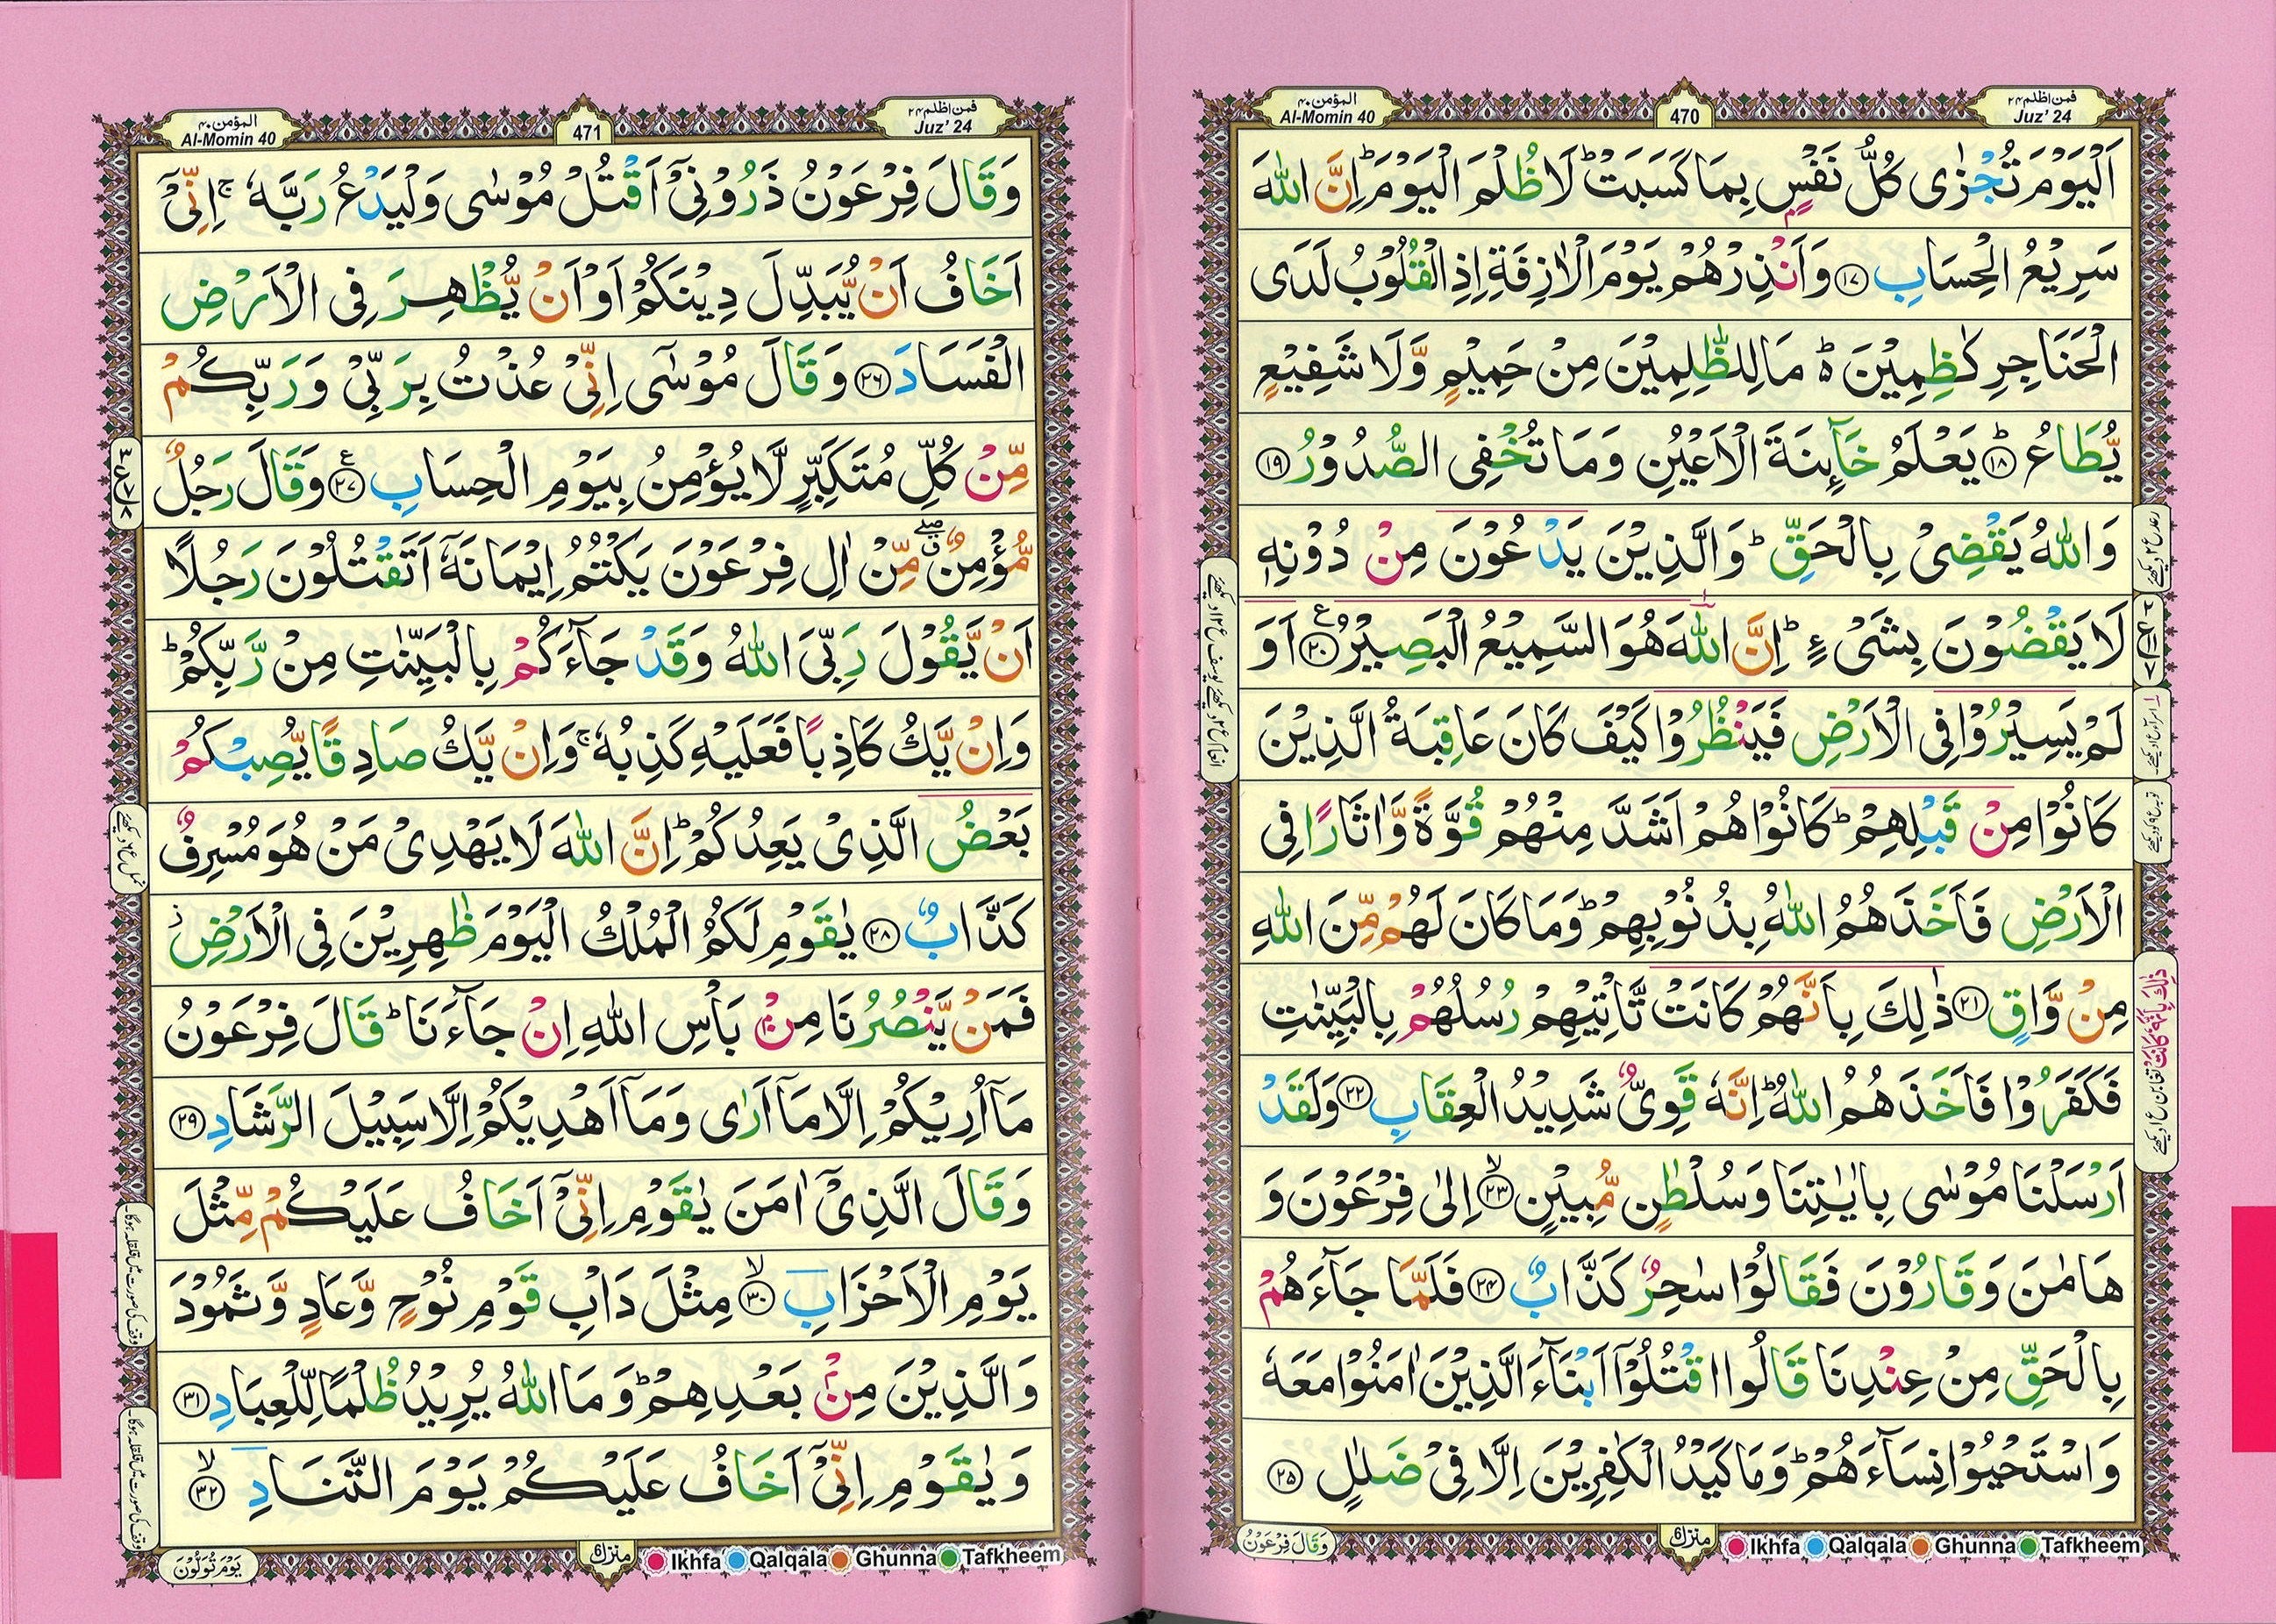 المؤمن ۴۰
Al-Momin 40
470
فمن اظلم ۲۴
Juz’ 24
اَلْیَوْمَ تُجْزٰی كُلُّ نَفْسٍۭ بِمَا كَسَبَتْ ؕ لَا ظُلْمَ الْیَوْمَ ؕ اِنَّ اللّٰهَ
سَرِیْعُ الْحِسَابِ ۱۷ وَاَنْذِرْهُمْ یَوْمَ الْاٰزِفَةِ اِذِ الْقُلُوْبُ لَدَی
الْحَنَاجِرِ كٰظِمِیْنَ ؕ۬ مَا لِلظّٰلِمِیْنَ مِنْ حَمِیْمٍ وَّلَا شَفِیْعٍ
یُّطَاعُ ؕ ۱۸ یَعْلَمُ خَآىِٕنَةَ الْاَعْیُنِ وَمَا تُخْفِی الصُّدُوْرُ ۱۹
وَاللّٰهُ یَقْضِیْ بِالْحَقِّ ؕ وَالَّذِیْنَ یَدْعُوْنَ مِنْ دُوْنِهٖ
لَا یَقْضُوْنَ بِشَیْءٍ ؕ اِنَّ اللّٰهَ هُوَ السَّمِیْعُ الْبَصِیْرُ ۲۰ اَوَ
لَمْ یَسِیْرُوْا فِی الْاَرْضِ فَیَنْظُرُوْا كَیْفَ كَانَ عَاقِبَةُ الَّذِیْنَ
كَانُوْا مِنْ قَبْلِهِمْ ؕ كَانُوْا هُمْ اَشَدَّ مِنْهُمْ قُوَّةً وَّاٰثَارًا فِی
الْاَرْضِ فَاَخَذَهُمُ اللّٰهُ بِذُنُوْبِهِمْ ؕ وَمَا كَانَ لَهُمْ مِّنَ اللّٰهِ
مِنْ وَّاقٍ ۲۱ ذٰلِكَ بِاَنَّهُمْ كَانَتْ تَّاْتِیْهِمْ رُسُلُهُمْ بِالْبَیِّنٰتِ
فَكَفَرُوْا فَاَخَذَهُمُ اللّٰهُ ؕ اِنَّهٗ قَوِیٌّ شَدِیْدُ الْعِقَابِ ۲۲ وَلَقَدْ
اَرْسَلْنَا مُوْسٰی بِاٰیٰتِنَا وَسُلْطٰنٍ مُّبِیْنٍ ۙ ۲۳ اِلٰی فِرْعَوْنَ وَ
هَامٰنَ وَقَارُوْنَ فَقَالُوْا سٰحِرٌ كَذَّابٌ ۲۴ فَلَمَّا جَآءَهُمْ
بِالْحَقِّ مِنْ عِنْدِنَا قَالُوا اقْتُلُوْۤا اَبْنَآءَ الَّذِیْنَ اٰمَنُوْا مَعَهٗ
وَاسْتَحْیُوْا نِسَآءَهُمْ ؕ وَمَا كَیْدُ الْكٰفِرِیْنَ اِلَّا فِیْ ضَلٰلٍ ۲۵
وَقَالَ فِرْعَوْنُ
منزل 6
Ikhfa Qalqala Ghunna Tafkheem
المؤمن ۴۰
Al-Momin 40
471
فمن اظلم ۲۴
Juz’ 24
وَقَالَ فِرْعَوْنُ ذَرُوْنِیْۤ اَقْتُلْ مُوْسٰی وَلْیَدْعُ رَبَّهٗ ۚ اِنِّیْۤ
اَخَافُ اَنْ یُّبَدِّلَ دِیْنَكُمْ اَوْ اَنْ یُّظْهِرَ فِی الْاَرْضِ
الْفَسَادَ ۲۶ وَقَالَ مُوْسٰۤی اِنِّیْ عُذْتُ بِرَبِّیْ وَرَبِّكُمْ
مِّنْ كُلِّ مُتَكَبِّرٍ لَّا یُؤْمِنُ بِیَوْمِ الْحِسَابِ ۲۷ وَقَالَ رَجُلٌ
مُّؤْمِنٌ مِّنْ اٰلِ فِرْعَوْنَ یَكْتُمُ اِیْمَانَهٗۤ اَتَقْتُلُوْنَ رَجُلًا
اَنْ یَّقُوْلَ رَبِّیَ اللّٰهُ وَقَدْ جَآءَكُمْ بِالْبَیِّنٰتِ مِنْ رَّبِّكُمْ ؕ
وَاِنْ یَّكُ كَاذِبًا فَعَلَیْهِ كَذِبُهٗ ۚ وَاِنْ یَّكُ صَادِقًا یُّصِبْكُمْ
بَعْضُ الَّذِیْ یَعِدُكُمْ ؕ اِنَّ اللّٰهَ لَا یَهْدِیْ مَنْ هُوَ مُسْرِفٌ
كَذَّابٌ ۲۸ یٰقَوْمِ لَكُمُ الْمُلْكُ الْیَوْمَ ظٰهِرِیْنَ فِی الْاَرْضِ ؗ
فَمَنْ یَّنْصُرُنَا مِنْۢ بَاْسِ اللّٰهِ اِنْ جَآءَنَا ؕ قَالَ فِرْعَوْنُ
مَاۤ اُرِیْكُمْ اِلَّا مَاۤ اَرٰی وَمَاۤ اَهْدِیْكُمْ اِلَّا سَبِیْلَ الرَّشَادِ ۲۹
وَقَالَ الَّذِیْۤ اٰمَنَ یٰقَوْمِ اِنِّیْۤ اَخَافُ عَلَیْكُمْ مِّثْلَ
یَوْمِ الْاَحْزَابِ ۙ ۳۰ مِثْلَ دَاْبِ قَوْمِ نُوْحٍ وَّعَادٍ وَّثَمُوْدَ
وَالَّذِیْنَ مِنْۢ بَعْدِهِمْ ؕ وَمَا اللّٰهُ یُرِیْدُ ظُلْمًا لِّلْعِبَادِ ۳۱
وَیٰقَوْمِ اِنِّیْۤ اَخَافُ عَلَیْكُمْ یَوْمَ التَّنَادِ ۙ ۳۲
یَوْمَ تُوَلُّوْنَ
منزل 6
Ikhfa Qalqala Ghunna Tafkheem